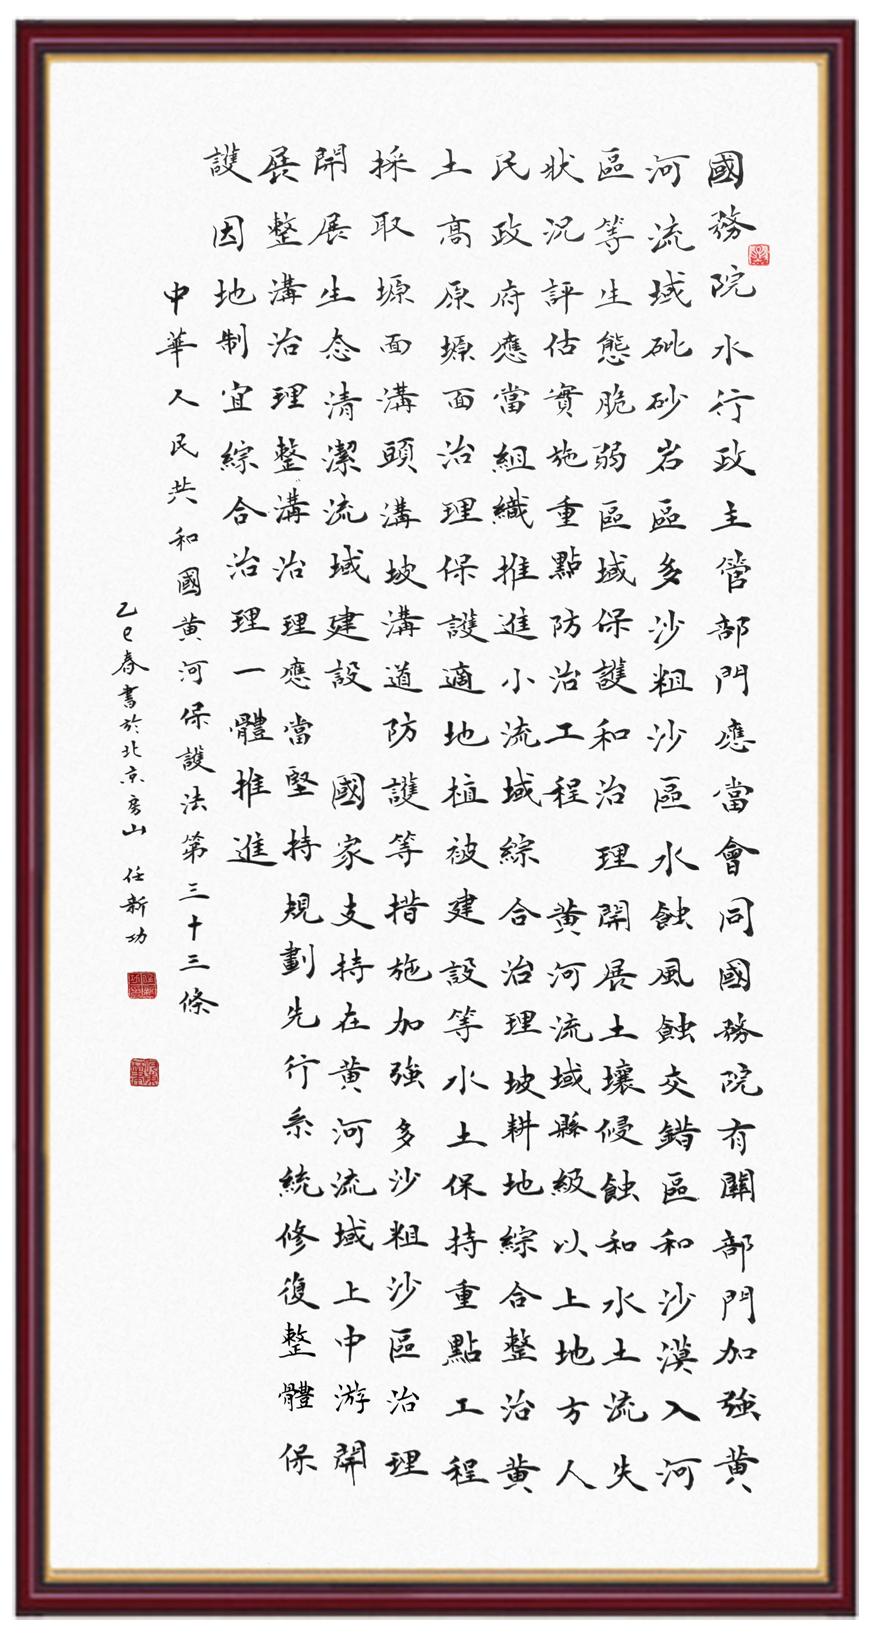 國務院水行政主管部門應當會同國務院有關部門加強黃
河流域砒砂岩區多沙粗沙區水蝕風蝕交錯區和沙漠入河
區等生態脆弱區域保護和治理開展土壤侵蝕和水土流失
狀況評估實施重點防治工程 黃河流域縣級以上地方人
民政府應當組織推進小流域綜合治理坡耕地綜合整治黃
土高原塬面治理保護適地植被建設等水土保持重點工程
採取塬面溝頭溝坡溝道防護等措施加強多沙粗沙區治理
開展生态清潔流域建設 國家支持在黃河流域上中游開
展整溝治理整溝治理應當堅持規劃先行系統修復整體保
護因地制宜綜合治理一體推進
中華人民共和國黃河保護法第三十三條
乙巳春書於北京房山 任新功